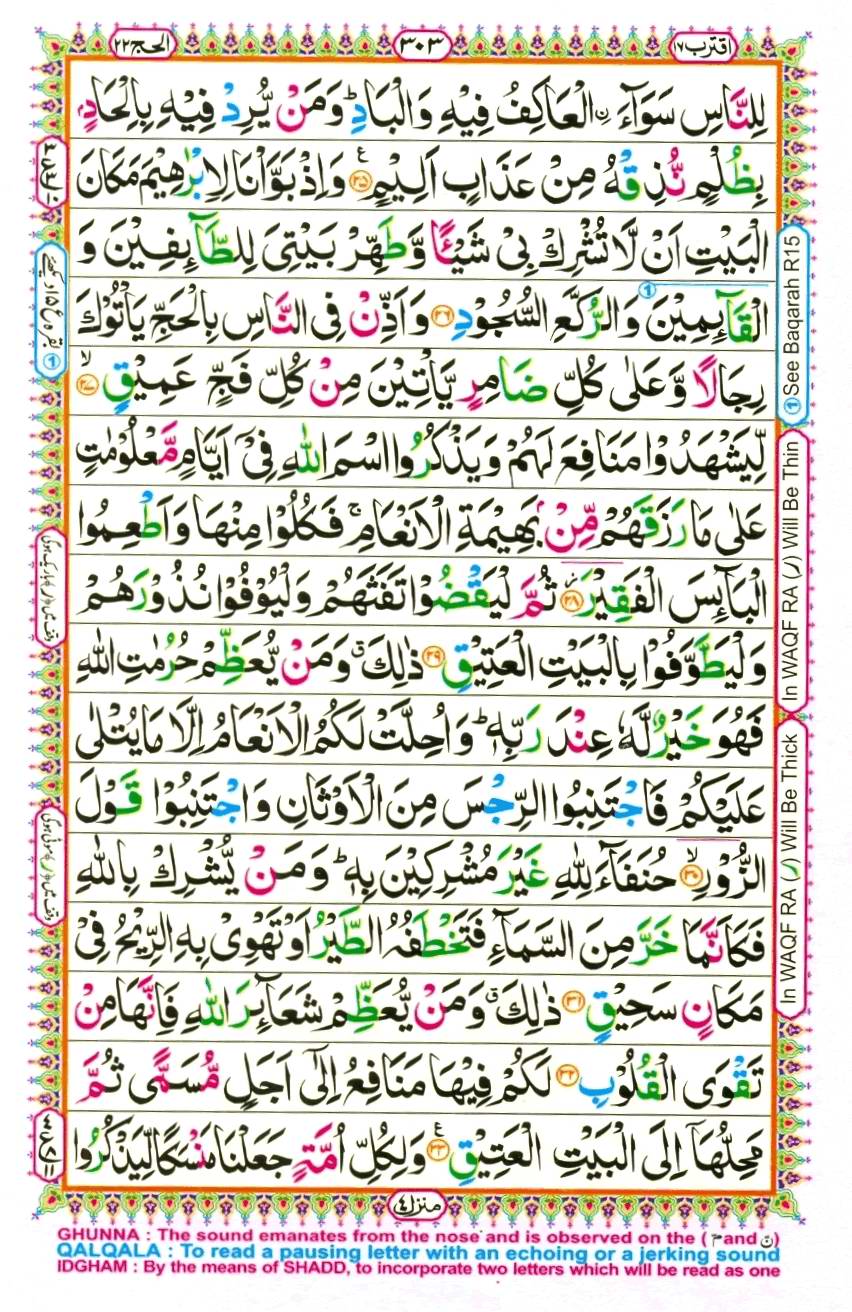 اقترب ١٧
٣٠٣
الحج ٢٢
لِلنَّاسِ سَوَآءَ ۨالْعَاكِفُ فِيْهِ وَالْبَادِ ؕ وَمَنْ يُّرِدْ فِيْهِ بِاِلْحَادٍۭ
بِظُلْمٍ نُّذِقْهُ مِنْ عَذَابٍ اَلِيْمٍ ۠ ﴿۲۵﴾ وَاِذْ بَوَّاْنَا لِاِبْرٰهِيْمَ مَكَانَ
الْبَيْتِ اَنْ لَّا تُشْرِكْ بِىْ شَيْـًٔا وَّطَهِّرْ بَيْتِىَ لِلطَّآئِفِيْنَ وَ
الْقَآئِمِيْنَ وَالرُّكَّعِ السُّجُوْدِ ﴿۲۶﴾ وَاَذِّنْ فِى النَّاسِ بِالْحَجِّ يَاْتُوْكَ
رِجَالًا وَّعَلٰى كُلِّ ضَامِرٍ يَّاْتِيْنَ مِنْ كُلِّ فَجٍّ عَمِيْقٍ ۙ ﴿۲۷﴾
لِّيَشْهَدُوْا مَنَافِعَ لَهُمْ وَيَذْكُرُوا اسْمَ اللّٰهِ فِىْۤ اَيَّامٍ مَّعْلُوْمٰتٍ
عَلٰى مَا رَزَقَهُمْ مِّنْۢ بَهِيْمَةِ الْاَنْعَامِ ۚ فَكُلُوْا مِنْهَا وَاَطْعِمُوا
الْبَآئِسَ الْفَقِيْرَ ۫ ﴿۲۸﴾ ثُمَّ لْيَقْضُوْا تَفَثَهُمْ وَلْيُوْفُوْا نُذُوْرَهُمْ
وَلْيَطَّوَّفُوْا بِالْبَيْتِ الْعَتِيْقِ ﴿۲۹﴾ ذٰلِكَ ۗ وَمَنْ يُّعَظِّمْ حُرُمٰتِ اللّٰهِ
فَهُوَ خَيْرٌ لَّهٗ عِنْدَ رَبِّهٖ ؕ وَاُحِلَّتْ لَكُمُ الْاَنْعَامُ اِلَّا مَا يُتْلٰى
عَلَيْكُمْ فَاجْتَنِبُوا الرِّجْسَ مِنَ الْاَوْثَانِ وَاجْتَنِبُوْا قَوْلَ
الزُّوْرِ ۙ ﴿۳۰﴾ حُنَفَآءَ لِلّٰهِ غَيْرَ مُشْرِكِيْنَ بِهٖ ؕ وَمَنْ يُّشْرِكْ بِاللّٰهِ
فَكَاَنَّمَا خَرَّ مِنَ السَّمَآءِ فَتَخْطَفُهُ الطَّيْرُ اَوْ تَهْوِىْ بِهِ الرِّيْحُ فِىْ
مَكَانٍ سَحِيْقٍ ﴿۳۱﴾ ذٰلِكَ ۗ وَمَنْ يُّعَظِّمْ شَعَآئِرَ اللّٰهِ فَاِنَّهَا مِنْ
تَقْوَى الْقُلُوْبِ ﴿۳۲﴾ لَكُمْ فِيْهَا مَنَافِعُ اِلٰٓى اَجَلٍ مُّسَمًّى ثُمَّ
مَحِلُّهَاۤ اِلَى الْبَيْتِ الْعَتِيْقِ ۠ ﴿۳۳﴾ وَلِكُلِّ اُمَّةٍ جَعَلْنَا مَنْسَكًا لِّيَذْكُرُوا
① See Baqarah R15
In WAQF RA (ر) Will Be Thin
In WAQF RA (ر) Will Be Thick
منزل ٤
GHUNNA : The sound emanates from the nose and is observed on the ( م and ن)
QALQALA : To read a pausing letter with an echoing or a jerking sound
IDGHAM : By the means of SHADD, to incorporate two letters which will be read as one